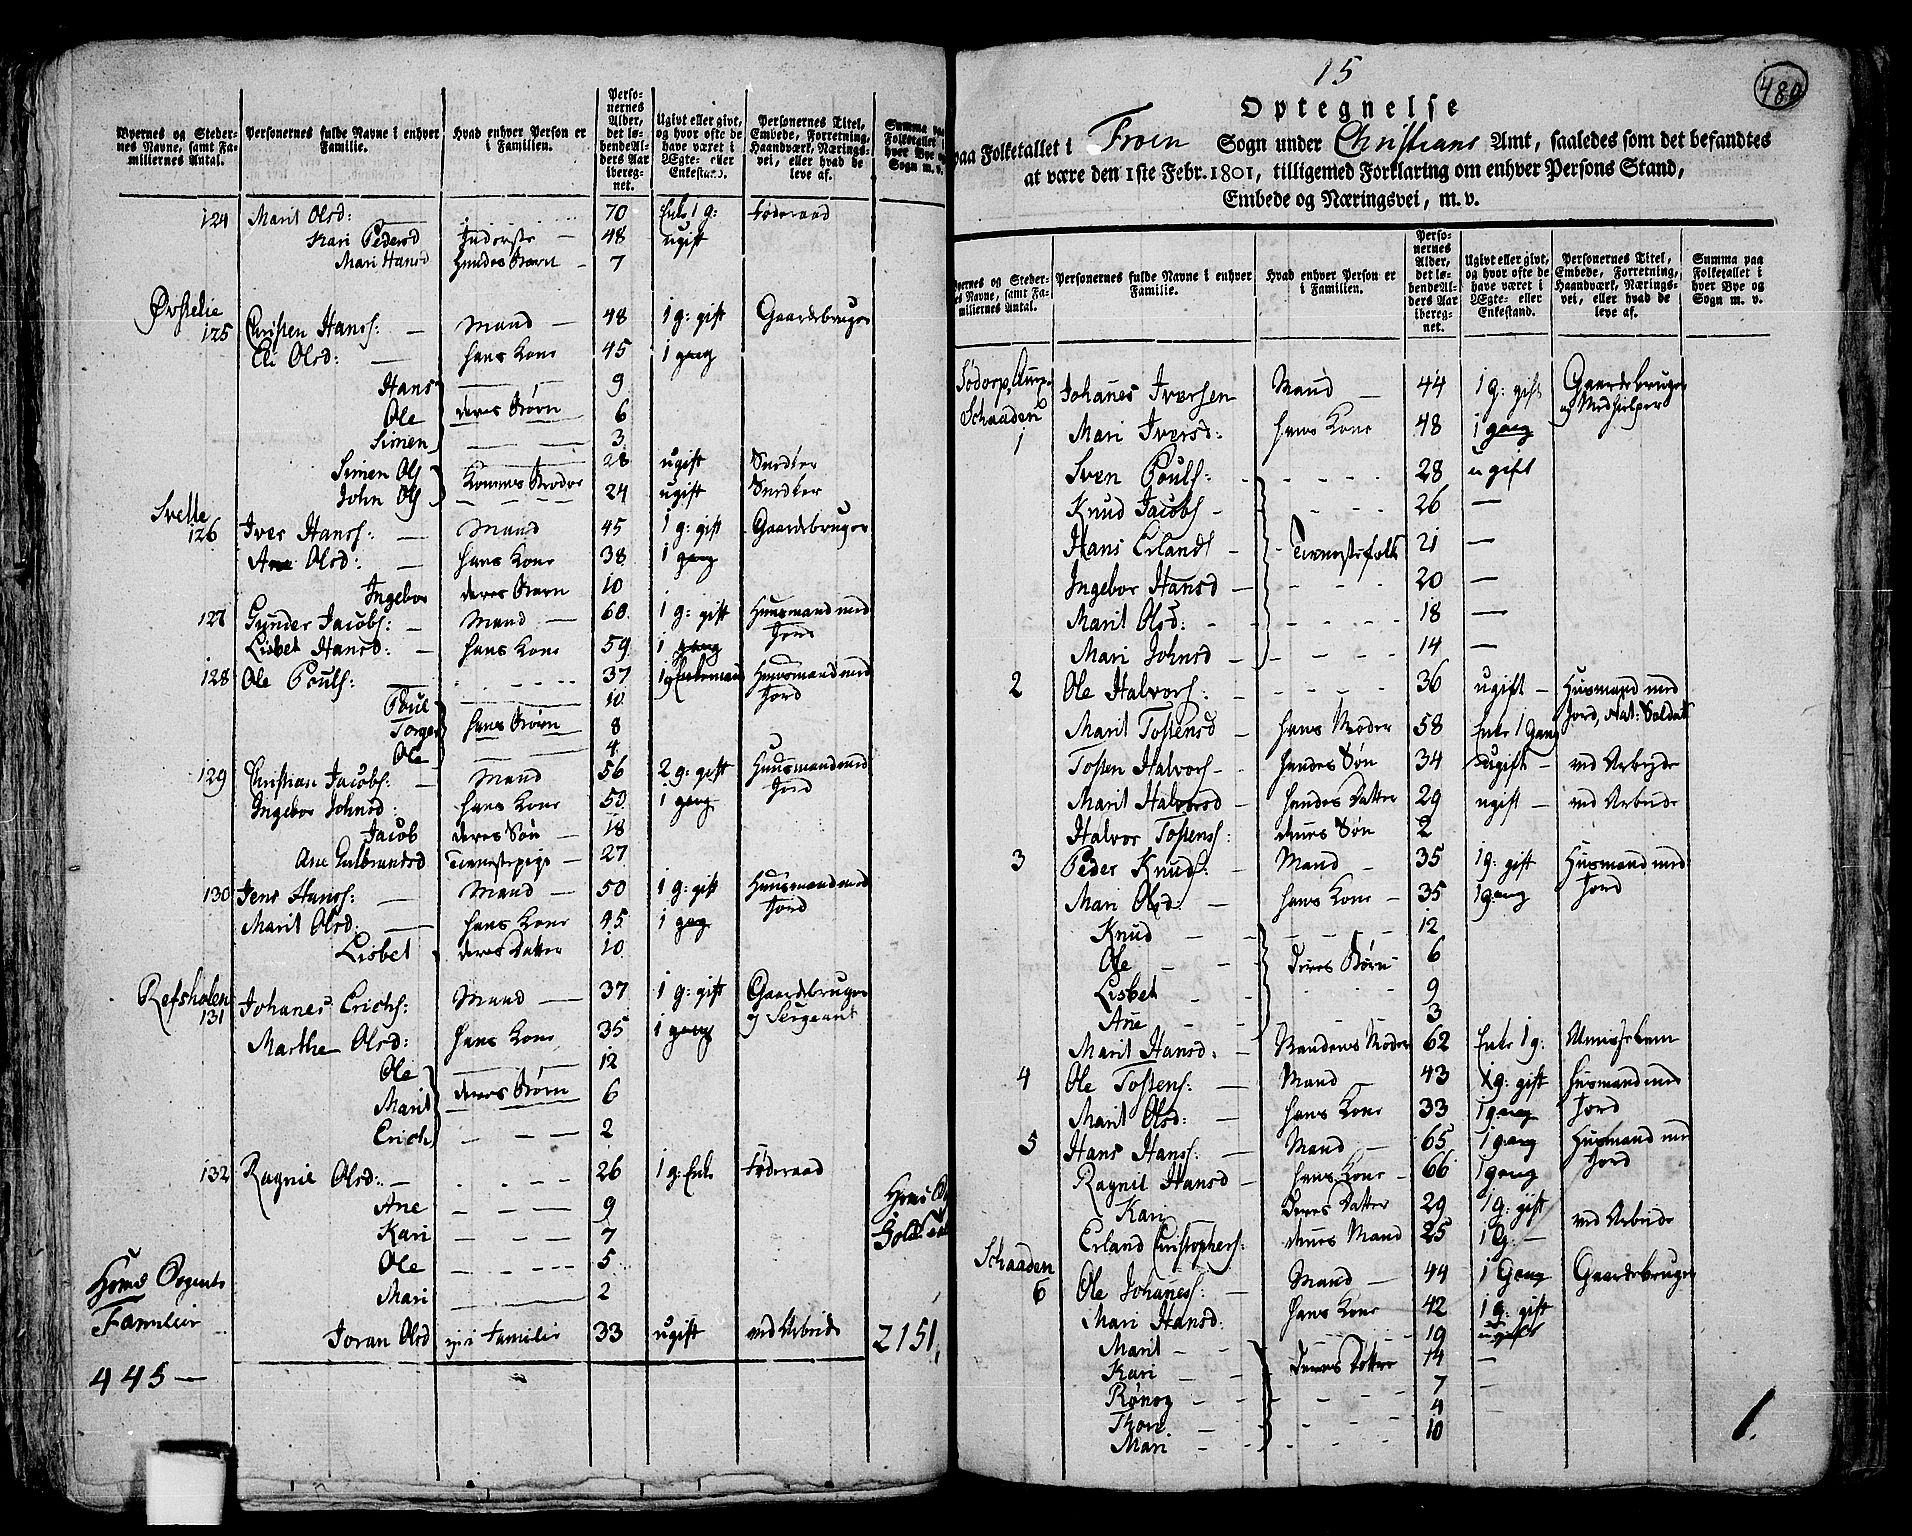 Byernes og Steder-
nes Navne, samt Fa-
miliernes Antal.
Personernes fulde Navne i enhver
Familie.
Hvad enhver Person er
i Familien.
Perso-
nernes
Alder,
det lø-
bende Al-
ders Aar
iberegnet.
Ugivt eller givt,
og hvor ofte de
have været i
Ægte- eller
Enkestand.
Personernes Titel,
Embede, Forretning,
Haandværk, Nærings-
vei, eller hvad de
leve af.
Summa paa
Folketallet i
hver Bye og
Sogn m. v.
124 Marit Olsd: 70 Enke 1 g: Føderaad
Kari Pedersd Inderste 48 ugift
Mari Hansd hendes Barn 7
Øvstelie
125 Christen Hanss: Mand 48 1 g: gift Gaardbruger
Eli Olsd: hans Kone 45 1 gang
Hans 9
Ole deres Børn 6
Simen 3
Simen Ols 28 ugift Snedker
John Ols Konens Broder 24 ugift Snedker
Svelle
126 Iver Hanss: Mand 45 1 g: gift Gaardbruger
Ane Olsd: hans Kone 38 1 gang
Ingebor deres Barn 10
127 Gunder Jacobs: Mand 60 1 g: gift Huusmand med
Jord
Lisbet Hansd: hans Kone 59 1 gang
128 Ole Pouls: 37 1 g Enkemand Huusmand med
Jord
Poul 10
Torger hans Børn 8
Ole 4
129 Christian Jacobs: Mand 56 2 g: gift Huusmand med
Jord
Ingebor Johnsd: hans Kone 50 1 gang
Jacob deres Søn 18
Ane Gulbrandsd Tienestepige 27
130 Jens Hanss: Mand 50 1 g: gift Huusmand med
Jord
Marit Olsd: hans Kone 45 1 gang
Lisbet deres Datter 10
Refsholen
131 Johanes Erichs: Mand 37 1 g: gift Gaardbruger
og Sergeant
Marthe Olsd: hans Kone 35 1 gang
Ole 12
Marit deres Børn 6
Erich 2
132 Ragnil Olsd: 26 1 g: Enke Føderaad
Ane 9
Kari 7
Ole 5
Mari 2
Joran Olsd 33 ugift ved Arbeide 2151
Familier
445
15
480
Optegnelse
paa Folketallet i Froen Sogn under Christians Amt, saaledes som det befandtes
at være den 1ste Febr. 1801, tilligemed Forklaring om enhver Persons Stand,
Embede og Næringsvei, m. v.
Byernes og Steder-
nes Navne, samt Fa-
miliernes Antal.
Personernes fulde Navne i enhver
Familie.
Hvad enhver Person er
i Familien.
Perso-
nernes
Alder,
det lø-
bende Al-
ders Aar
iberegnet.
Ugivt eller givt,
og hvor ofte de
have været i
Ægte- eller
Enkestand.
Personernes Titel,
Embede, Forretning,
Haandværk, Nærings-
vei, eller hvad de
leve af.
Summa paa
Folketallet i
hver Bye og
Sogn m. v.
Sødorp
Schaaden
1 Johanes Iversen Mand 44 1 g: gift Gaardbruger
og Medhielper
Mari Iversd: hans Kone 48 1 gang
Sven Pouls: 28 ugift
Knud Jacobs 26
Hans Erlands Tienestefolk 21
Ingebor Hansd 20
Marit Olsd: 18
Mari Johnsd 14
2 Ole Halvors: 36 ugift Husmand med
Jord, Nat: Soldat
Marit Tostensd hans Moder 58 Enke 1 Gang
Tosten Halvors hendes Søn 34 ugift ved Arbeyde
Marit Halvorsd hendes Datter 29 ugift ved Arbeide
Halvor Tostens: dennes Søn 2
3 Peder Knuds: Mand 35 1 g: gift Husmand med
Jord
Mari Olsd: hans Kone 35 1 gang
Knud 12
Ole deres Børn 6
Lisbet 9
Ane 3
Marit Hansd: Mandens Moder 62 Enke 1 g: Almisselem
4 Ole Tostens: Mand 43 1 g: gift Husmand med
Jord
Marit Olsd: hans Kone 33 1 gang
5 Hans Hanss: Mand 65 1 gang Husmand med
Jord
Ragnil Hansd hans Kone 66 1 gang
Kari deres Datter 29 1 g: gift
Erland Christophers: dennes Mand 25 1 G: ved Arbeide
Schaaden
6 Ole Johaness: Mand 44 1 Gang Gaardbruger
Mari Hansd: hans Kone 42 1 g: gift
Marit 19 ugift
Kari deres Døttre 14
Rønog 7
Thore 4
Mari 10
1.